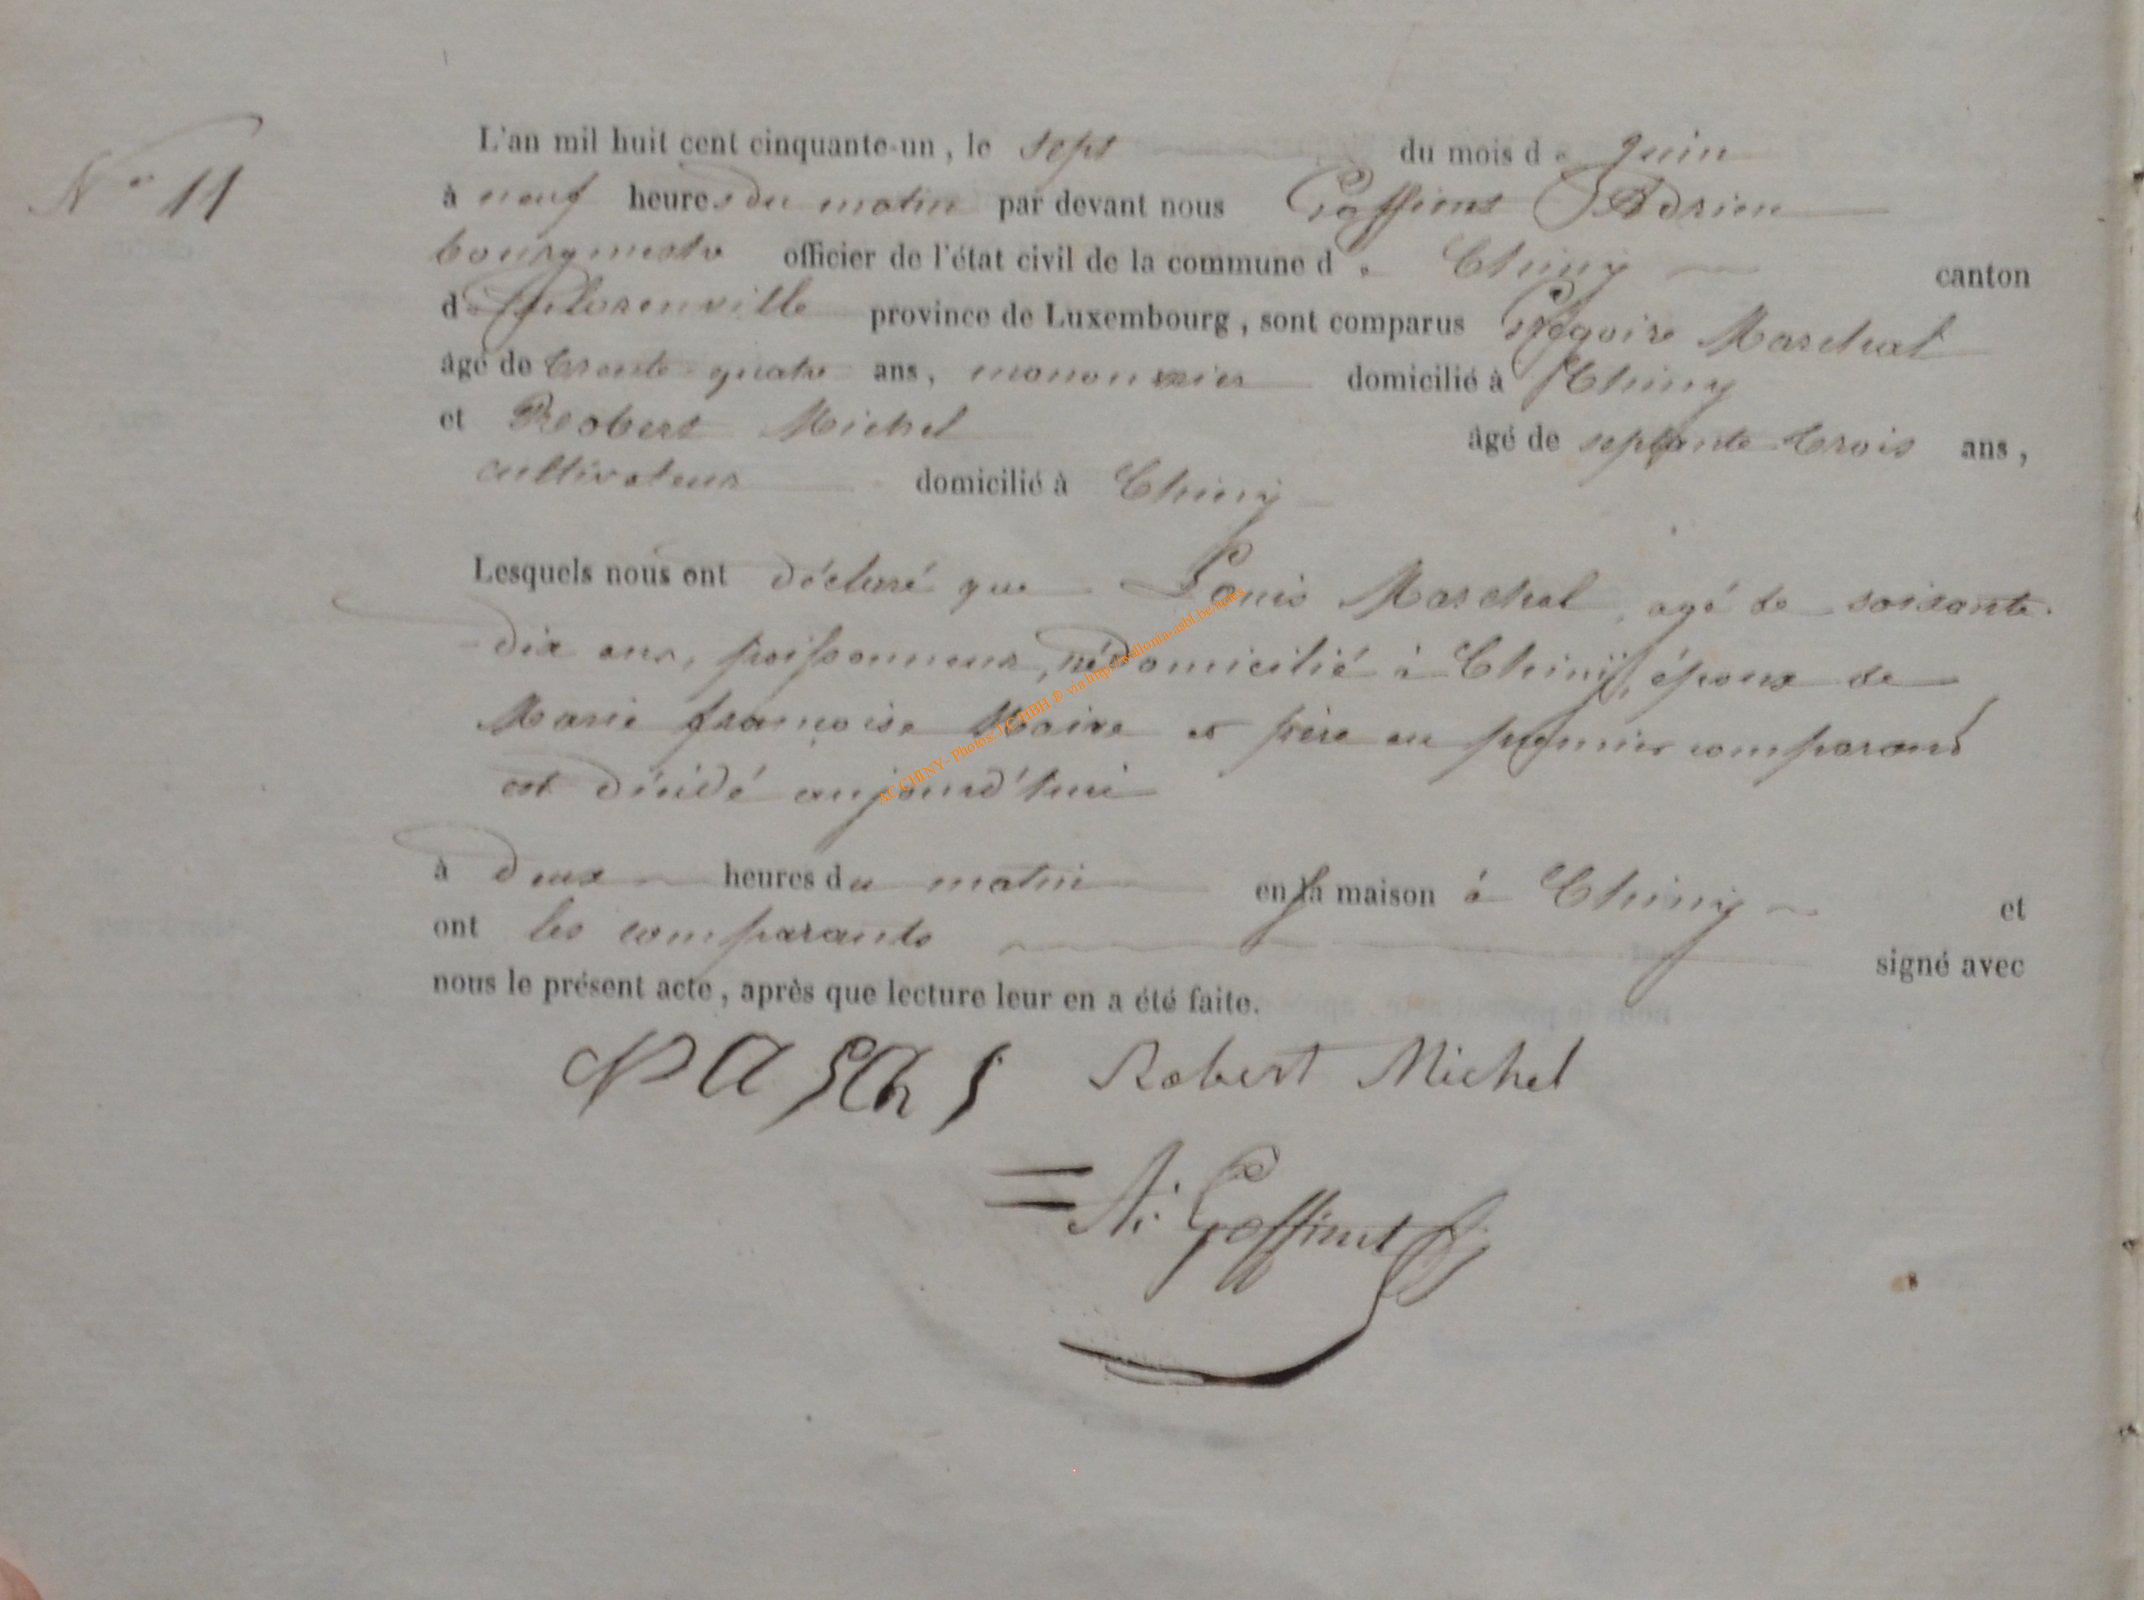 N° 11
L'an mil huit cent cinquante-un, le sept du mois de juin
à neuf heures du matin par devant nous Goffinet Adrien
bourgmestre officier de l'état civil de la commune de Chiny canton
de florenville province de Luxembourg, sont comparus Grégoire Marchal
âgé de trente-quatre ans, manouvrier domicilié à Chiny
et Robert Michel âgé de septante trois ans,
cultivateur domicilié à Chiny
Lesquels nous ont déclaré que Louis Marchal, agé de soixante-
dix ans, poissonneur, né domicilié à Chiny, époux de
Marie françoise Maire et père du premier comparant
est décédé aujourd'hui
à deux heures du matin en sa maison à Chiny et
ont les comparants signé avec
nous le présent acte, après que lecture leur en a été faite.
Robert Michel
A: Goffinet
AC CHINY - Photos J.C HBH © via http://wallonia-asbl.be/news